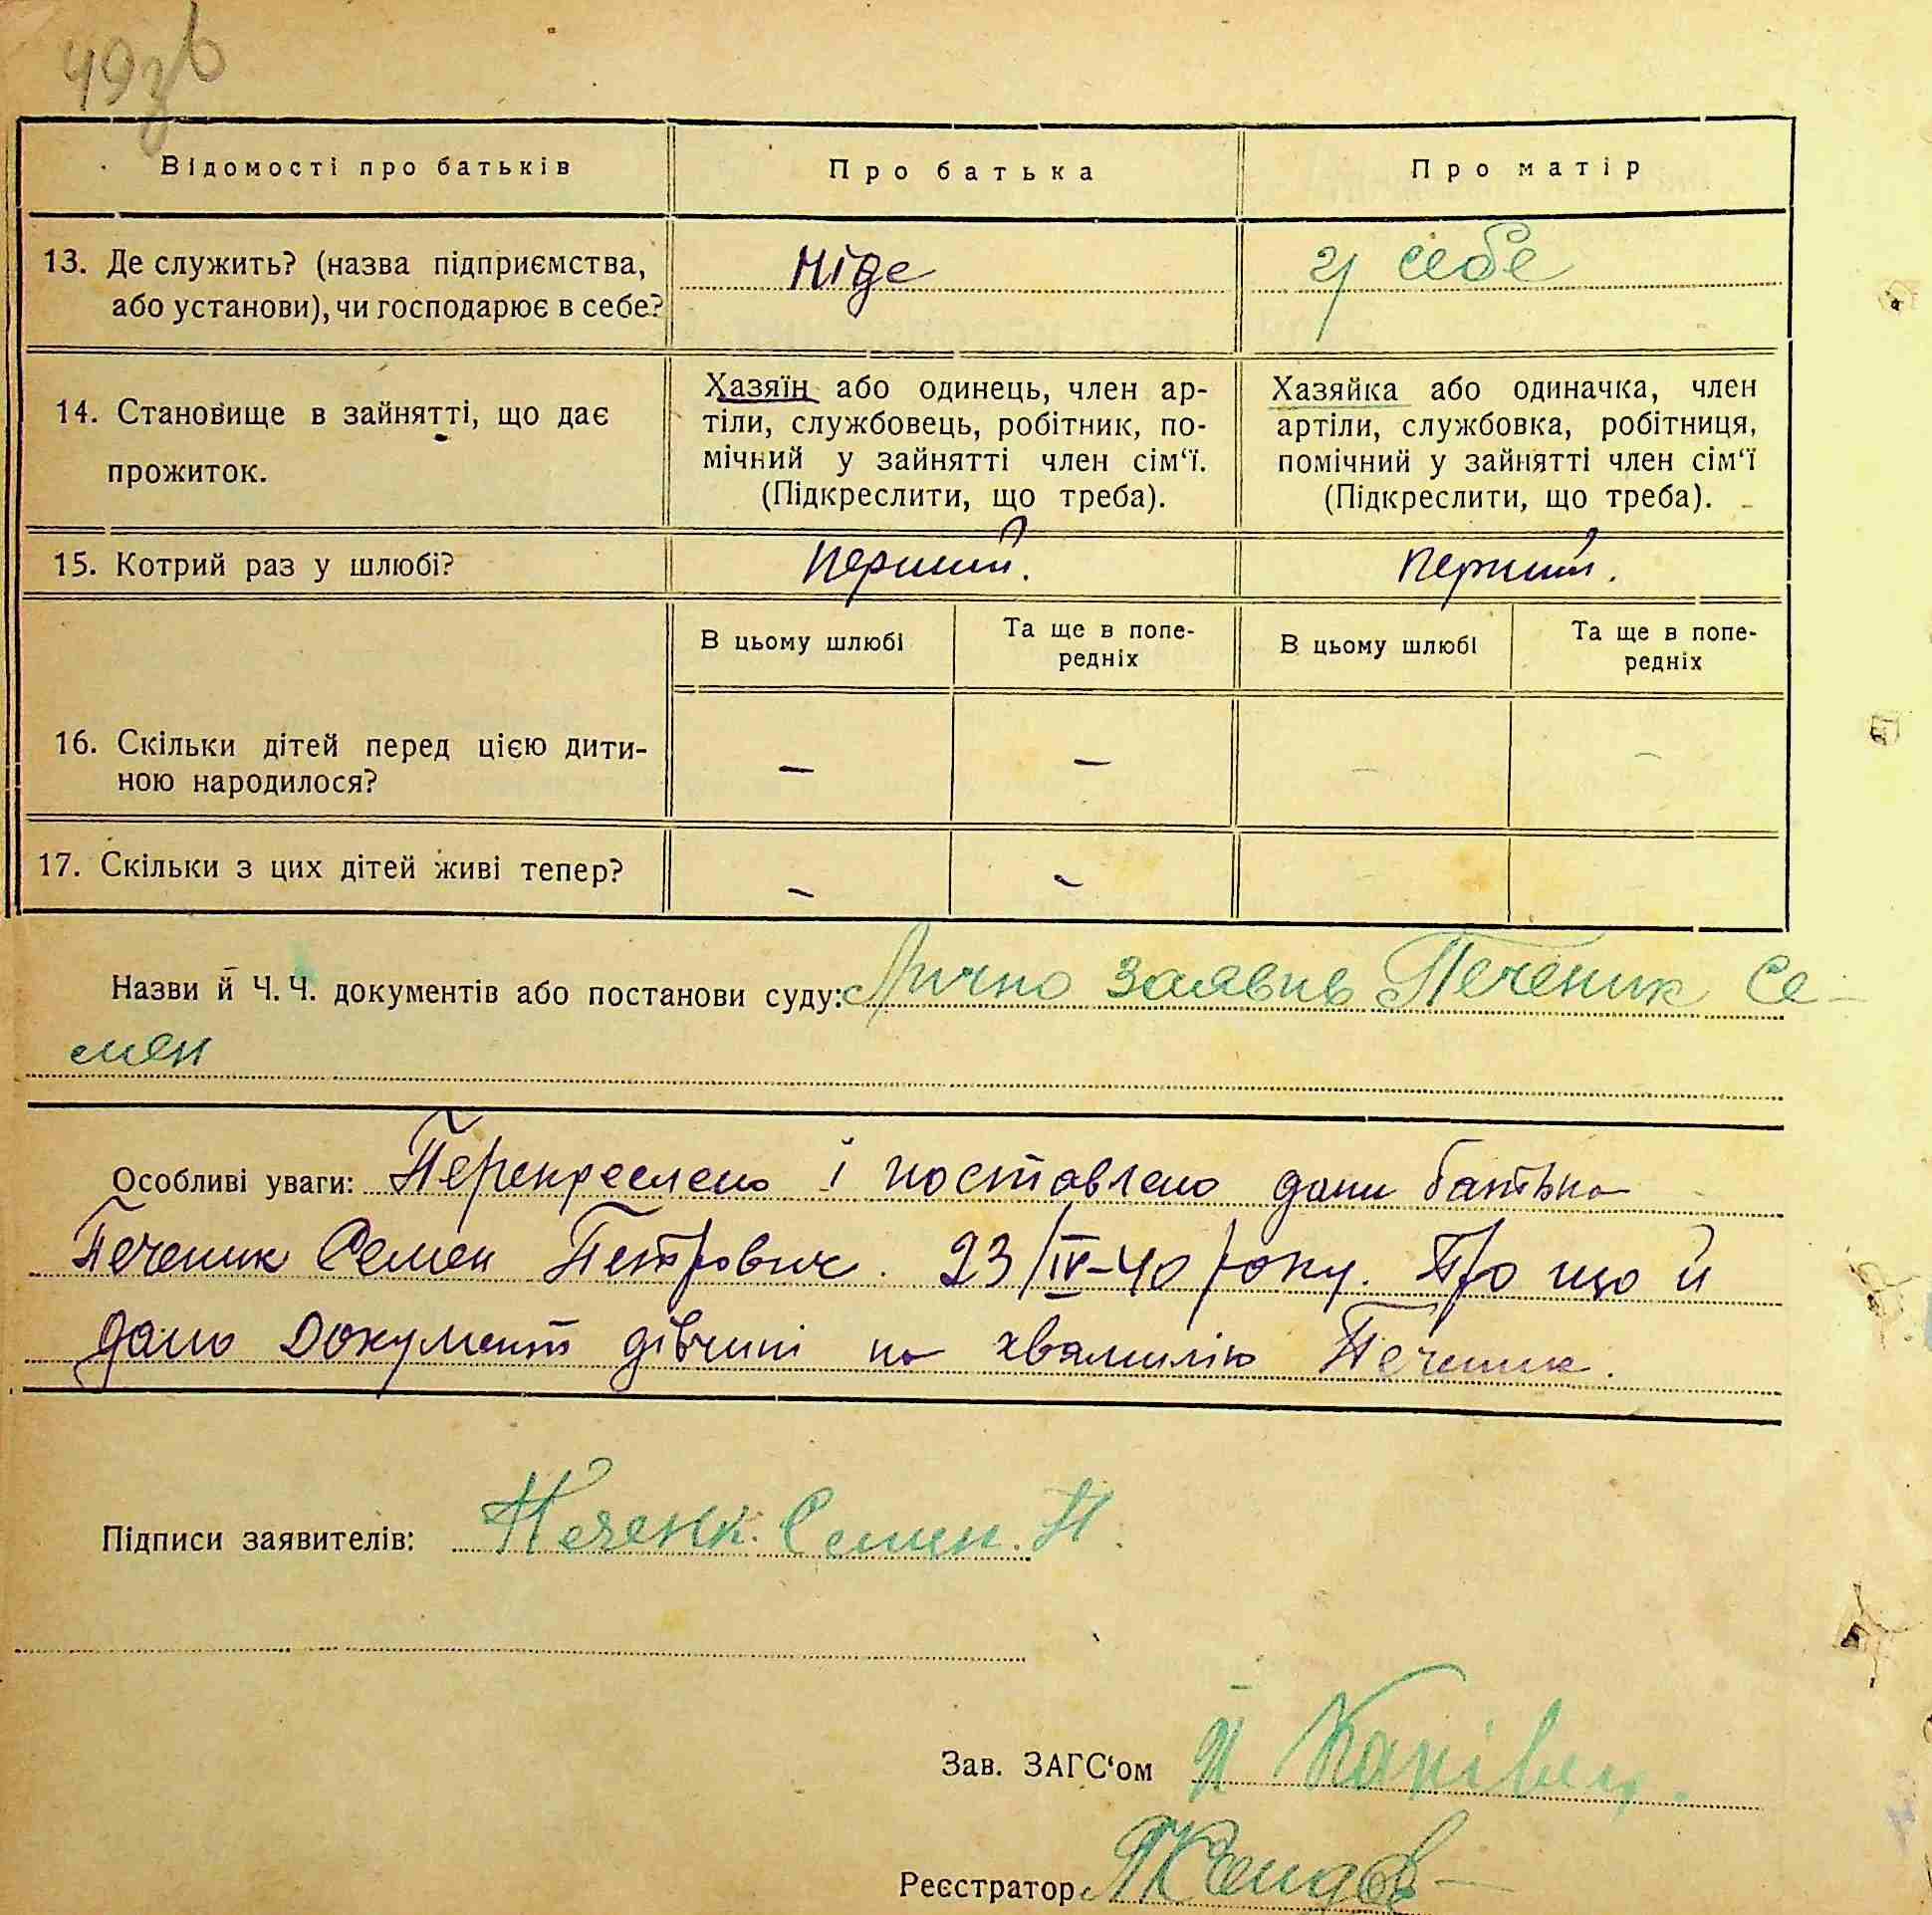 49зв
Відомості про батьків
Про батька
Про матір
13. Де служить? (назва підприємства,
або установи), чи господарює в себе?
Ніде
у себе
14. Становище в зайнятті, що дає
прожиток.
Хазяїн або одинець, член ар-
тіли, службовець, робітник, по-
мічний у зайнятті член сім‘ї.
(Підкреслити, що треба).
Хазяйка або одиначка, член
артіли, службовка, робітниця,
помічний у зайнятті член сім‘ї
(Підкреслити, що треба).
15. Котрий раз у шлюбі?
Перший.
Перший.
В цьому шлюбі
Та ще в попе-
редніх
В цьому шлюбі
Та ще в попе-
редніх
16. Скільки дітей перед цією дити-
ною народилося?
— — — —
17. Скільки з цих дітей живі тепер?
— —
Назви й Ч.Ч. документів або постанови суду: Лично заявив Печеник Се-
мен
Особливі уваги: Перекреслено і поставлено дани батька
Печеник Семен Петрович. 23/IV-40 року. Про що й
дано документ дівчині на хвамилію Печеник.
Підписи заявителів: Печенк. Семен. П.
Зав. ЗАГС‘ом П Канівец.
Реєстратор